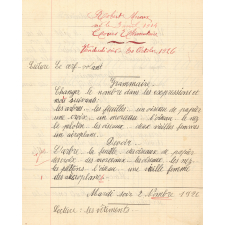 Robert
Cours Élémentaire
Vendredi soir, 1er Octobre 1926
Lecture Le cerf-volant
Grammaire
Changer le nombre dans les expressions et
mots suivants.
les arbres - les feuilles - un oiseau de papier
une voix - un morceau - l'oiseau - le nez
le peloton - les oiseaux - deux vieilles femmes
un aéroplane.
Devoir
L'arbre - la feuille - des oiseaux de papier
des voix - des morceaux - les oiseaux - les nez
les pelotons - l'oiseau - une vieille femme
des aéroplanes
Mardi soir 2 1926
Lecture: les vêtements